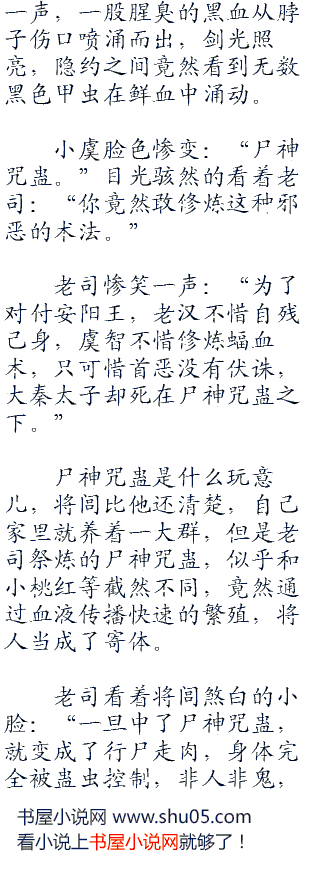 一声，一股腥臭的黑血从脖
子伤口喷涌而出，剑光照
亮，隐约之间竟然看到无数
黑色甲虫在鲜血中涌动。
小虞脸色惨变：“尸神
咒蛊。”目光骇然的看着老
司：“你竟然敢修炼这种邪
恶的术法。”
老司惨笑一声：“为了
对付安阳王，老汉不惜自残
己身，虞智不惜修炼蝠血
术，只可惜首恶没有伏诛，
大秦太子却死在尸神咒蛊之
下。”
尸神咒蛊是什么玩意
儿，将闾比他还清楚，自己
家里就养着一大群，但是老
司祭炼的尸神咒蛊，似乎和
小桃红等截然不同，竟然通
过血液传播快速的繁殖，将
人当成了寄体。
老司看着将闾煞白的小
脸：“一旦中了尸神咒蛊，
就变成了行尸走肉，身体完
全被蛊虫控制，非人非鬼，
书屋小说网 www.shu05.com
看小说上书屋小说网就够了！